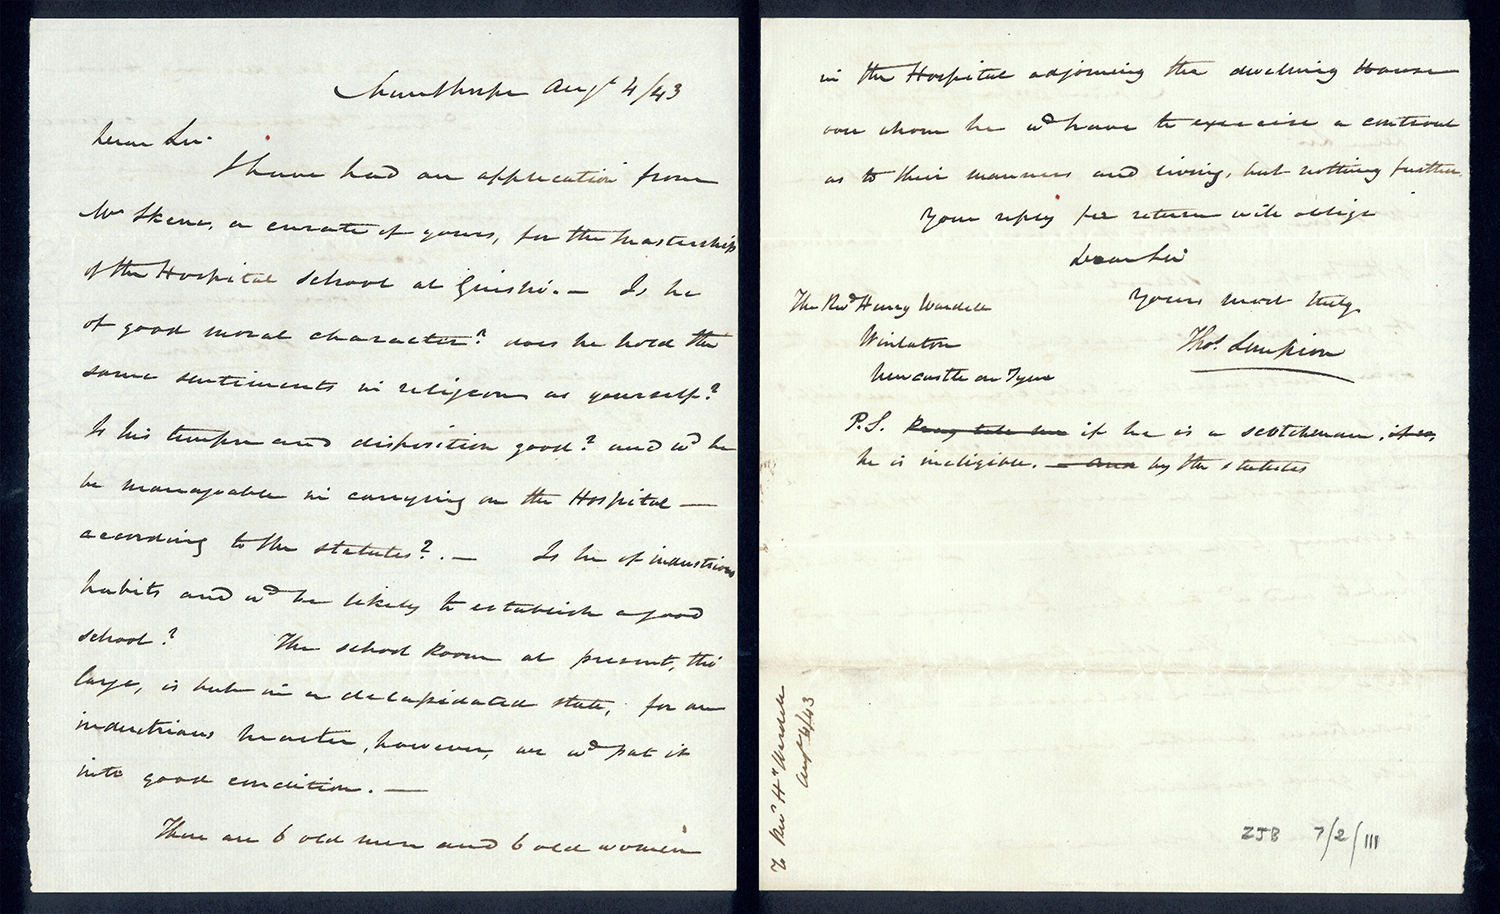 Aug<sup>t</sup> 4/43
Dear Sir
I have had an application from
Mr Skene, a curate of yours, for the Mastership
of the Hospital School at Guisbro'. — Is he
of good moral character? does he hold the
same sentiments in religion as yourself?
Is his temper and disposition good? and w<sup>d</sup> he
be manageable in carrying on the Hospital —
according to the statutes? . — Is he of industrious
habits and w<sup>d</sup> be likely to establish a good
school? The school Room at present, tho'
large, is but in a delapidated state, for an
industrious Master, however, we w<sup>d</sup> put it
into good condition. —
There are 6 old men and 6 old women
in the Hospital adjoining the dwelling House
over whom he w<sup>d</sup> have to exercise a controul
as to their manners and living, but nothing further.
Your reply per return will oblige
Dear Sir
Yours most truly
The Rev<sup>d</sup> Henry Wardell
Winlaton
Newcastle on Tyne
Tho<sup>s</sup>
P.S. Pray tell me if he is a Scotchman,
he is ineligible. — and by the statutes
To Rev<sup>d</sup> H<sup>y</sup> Wardell
Aug<sup>t</sup> 4/43
ZJB 7/2/111